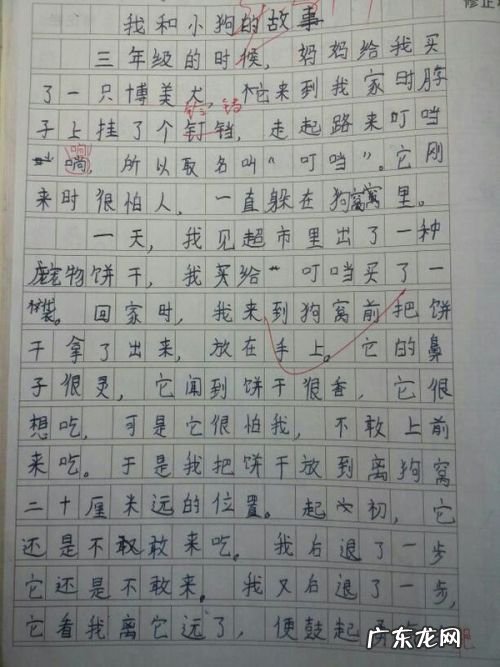 修正
我和小狗的故事
三年级的时候，妈妈给我买
了一只博美犬，它来到我家时脖
子上挂了个钉铛，走起路来叮当
响，所以取名叫“叮当”。它刚
来时很怕人，一直躲在狗窝里。
一天，我见超市里出了一种
宠物饼干，我买给叮当买了一
袋。回家时，我来到狗窝前把饼
干拿了出来，放在手上。它的鼻
子很灵，它闻到饼干很香，它很
想吃，可是它很怕我，不敢上前
来吃。于是我把饼干放到离狗窝
二十厘米远的位置。起初，它
还是不敢来吃。我后退了一步
它还是不敢来。我又后退了一步，
它看我离它远了，便鼓起
广东龙网